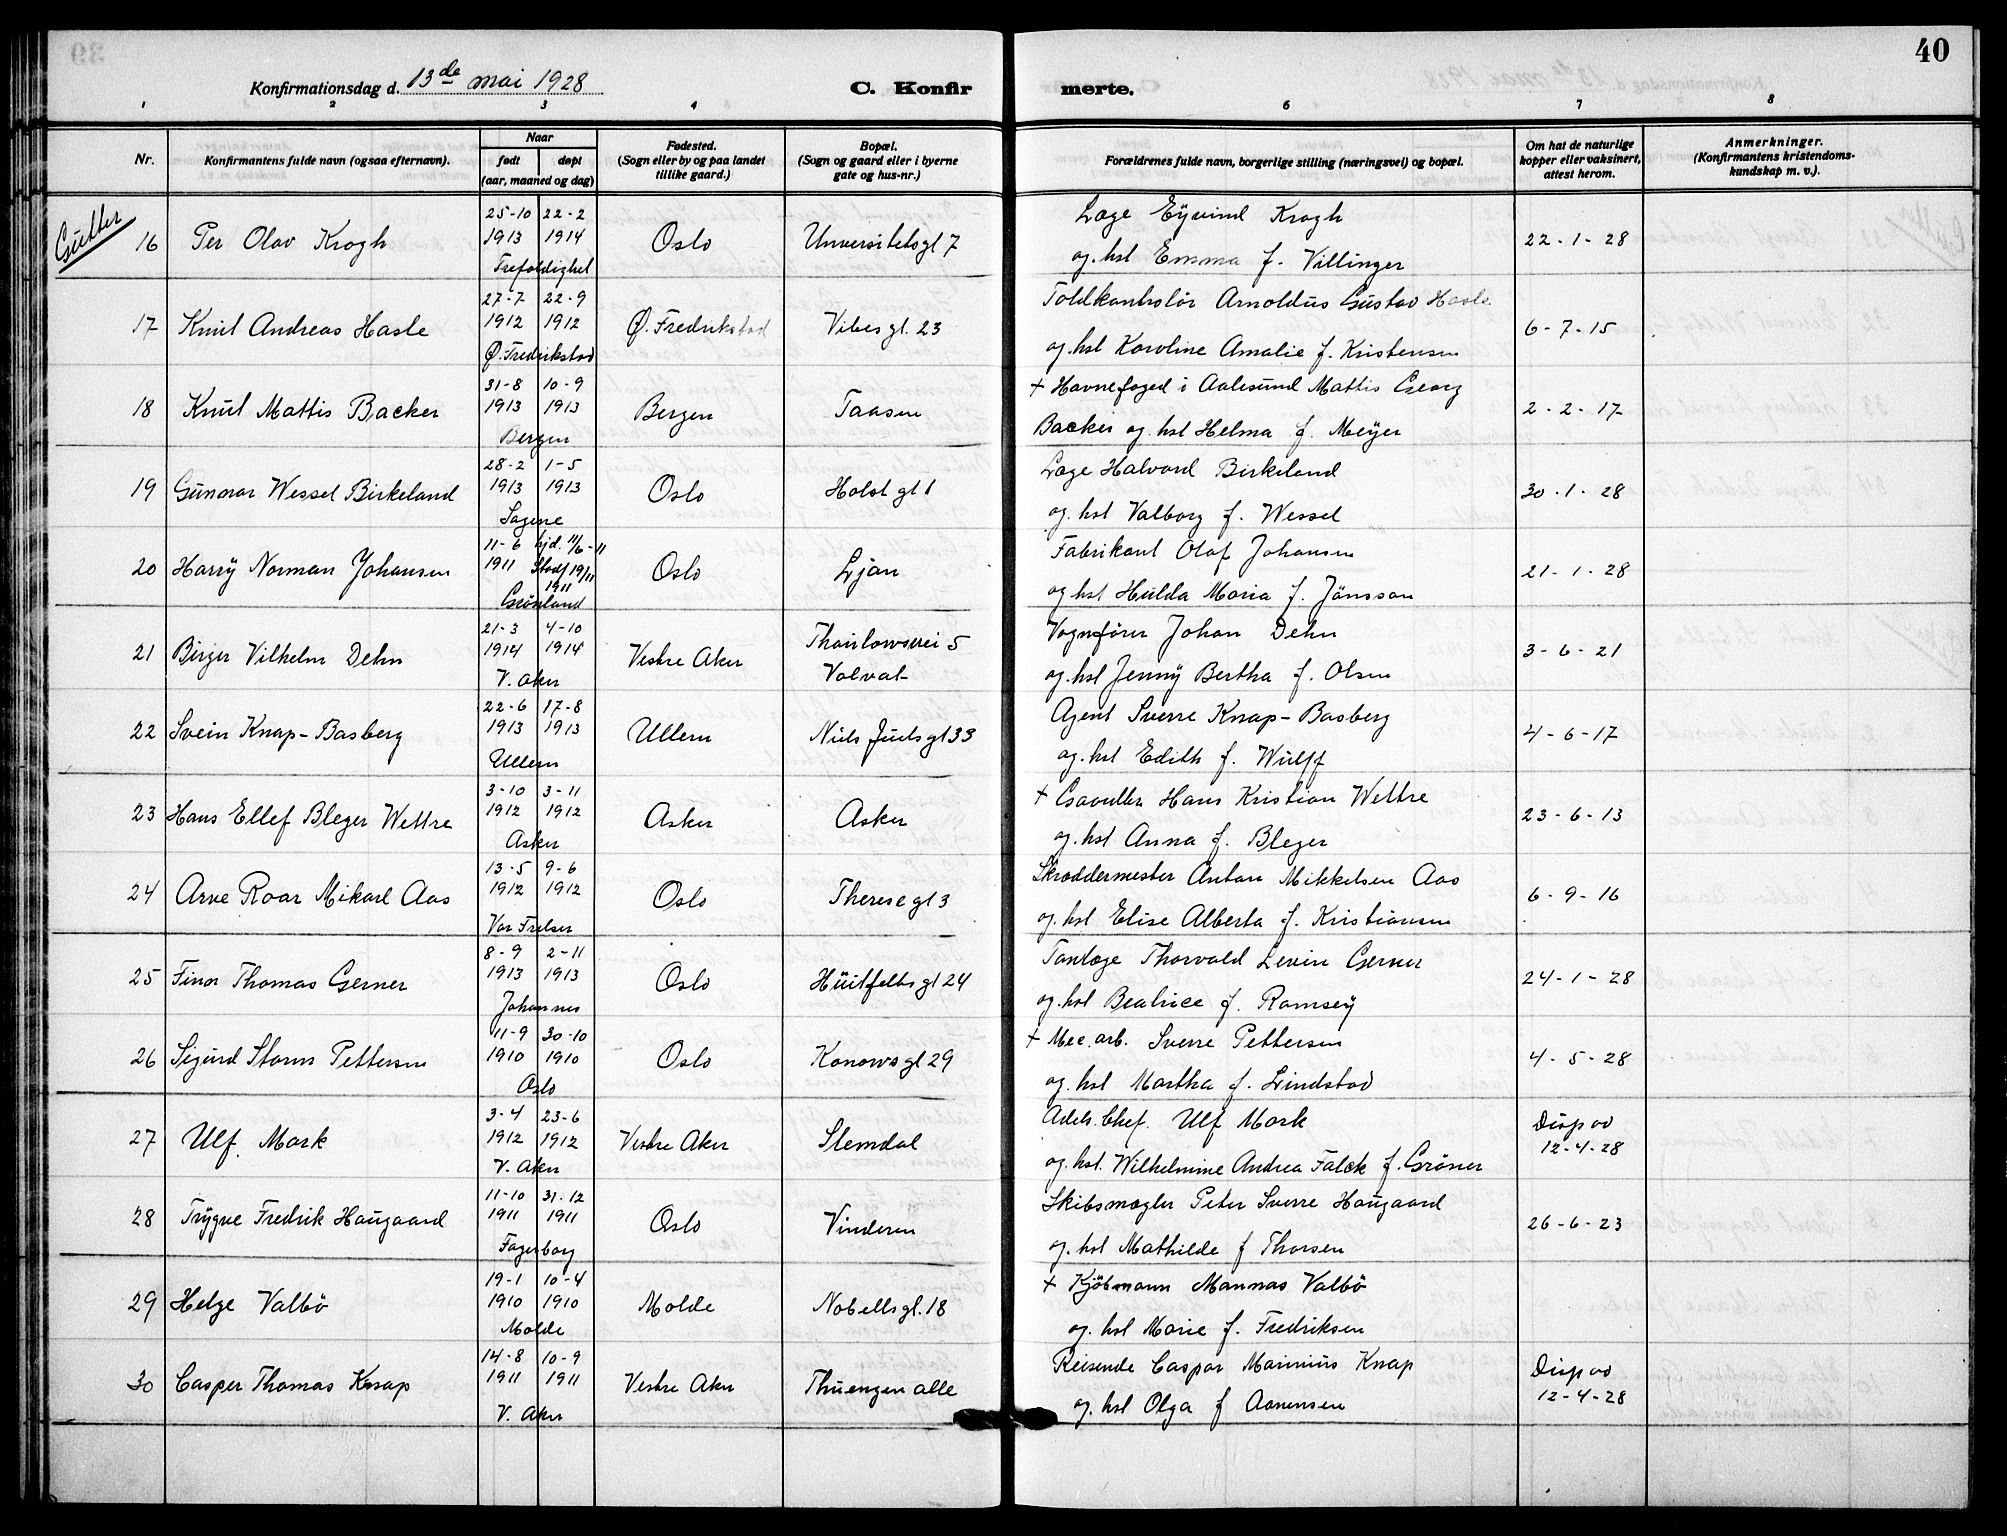 40
Konfirmationsdag d. 13de mai 1928
C. Konfirmerte.
1 2 3 4 6 7 8
Nr.
Konfirmantens fulde navn (ogsaa efternavn).
Naar
født døpt
(aar, maaned og dag)
Fødested.
(Sogn eller by og paa landet
tillike gaard.)
Bopæl.
(Sogn og gaard eller i byerne
gate og hus-nr.)
Forældrenes fulde navn, borgerlige stilling (næringsvei) og bopæl.
Om hat de naturlige
kopper eller vaksinert,
attest herom.
Anmerkninger.
(Konfirmantens kristendoms-
kundskap m. v.).
Gutter
25-10 22-2 Læge Eyvind Krogh
16 Per Olav Krogh 1913 1914 Oslo Universitetsgt 7 22-1-28
Trefoldighet og hst Emma f. Villinger
27-7 22-9 Toldkontrolør Arnoldus Gustav Hasle
17 Knut Andreas Hasle 1912 1912 Ø. Fredrikstad Vibesgt. 23 6-7-15
Ø. Fredrikstad og hst Karoline Amalie f. Kristensen
31-8 10-9 + Havnefoged i Aalesund Mattis Georg
18 Knut Mattis Backer 1913 1913 Bergen Taasen 2-2-17
Bergen Backer og hst Helma f. Meyer
28-2 1-5 Læge Halvard Birkeland
19 Gunnar Wessel Birkeland 1913 1913 Oslo Holst gt 1 30-1-28
Sagene og hst Valborg f. Wessel
11-6 hjd. 11/6-11 Fabrikant Olaf Johansen
20 Harry Norman Johansen 1911 Stadf 19/11 1911 Oslo Ljan 21-1-28
Grønland og hst Hulda Maria f. Jönsson
21-3 4-10 Vognfører Johan Dehn
21 Birger Vilhelm Dehn 1914 1914 Vestre Aker Thaulowsvei 5 Volvat 3-6-21
V. Aker og hst Jenny Bertha f. Olsen
22-6 17-8 Agent Sverre Knap-Basberg
22 Svein Knap-Basberg 1913 1913 Ullern Niels Juels gt 33 4-6-17
Ullern og hst Edith f. Wulff
3-10 3-11 + Hans Kristian Wettre
23 Hans Ellef Bleger Wettre 1912 1912 Asker Asker 23-6-13
Asker og hst Anna f. Bleger
13-5 9-6 Skræddermester Anton Mikkelsen Aas
24 Arve Roar Mikael Aas 1912 1912 Oslo Therese gt 3 6-9-16
Vor Frelser og hst Elise Alberta f. Kristiansen
8-9 2-11 Tandlæge Thorvald Levin Gerner
25 Finn Thomas Gerner 1913 1913 Oslo Huitfeltsgt 24 24-1-28
Johannes og hst Beatrice f. Ramsey
11-9 30-10 + Mec. arb. Sverre Pettersen
26 Sigurd Storm Pettersen 1910 1910 Oslo Konowsgt 29 4-5-28
Oslo og hst Martha f. Lindstad
3-4 23-6 Avdch. Chef. Ulf Mork Disp av
27 Ulf. Mork 1912 1912 Vestre Aker Slemdal 12-4-28
V. Aker og hst. Wilhelmine Andrea Falck f. Gröner
11-10 31-12 Skibsmægler Peter Sverre Haugaard
28 Trygve Fredrik Haugaard 1911 1911 Oslo Vinderen 26-6-23
Fagerborg og hst Mathilde f Thorsen
19-1 10-4 + Kjöbmann Mannas Valbö
29 Helge Valbö 1910 1910 Molde Nobellsgt. 18
Molde og hst Marie f. Fredriksen
14-8 10-9 Reisende Caspar Marinius Knap Disp av
30 Casper Thomas Knap 1911 1911 Vestre Aker Thuengen alle 12-4-28
V. Aker og hst Olga f Aanensen